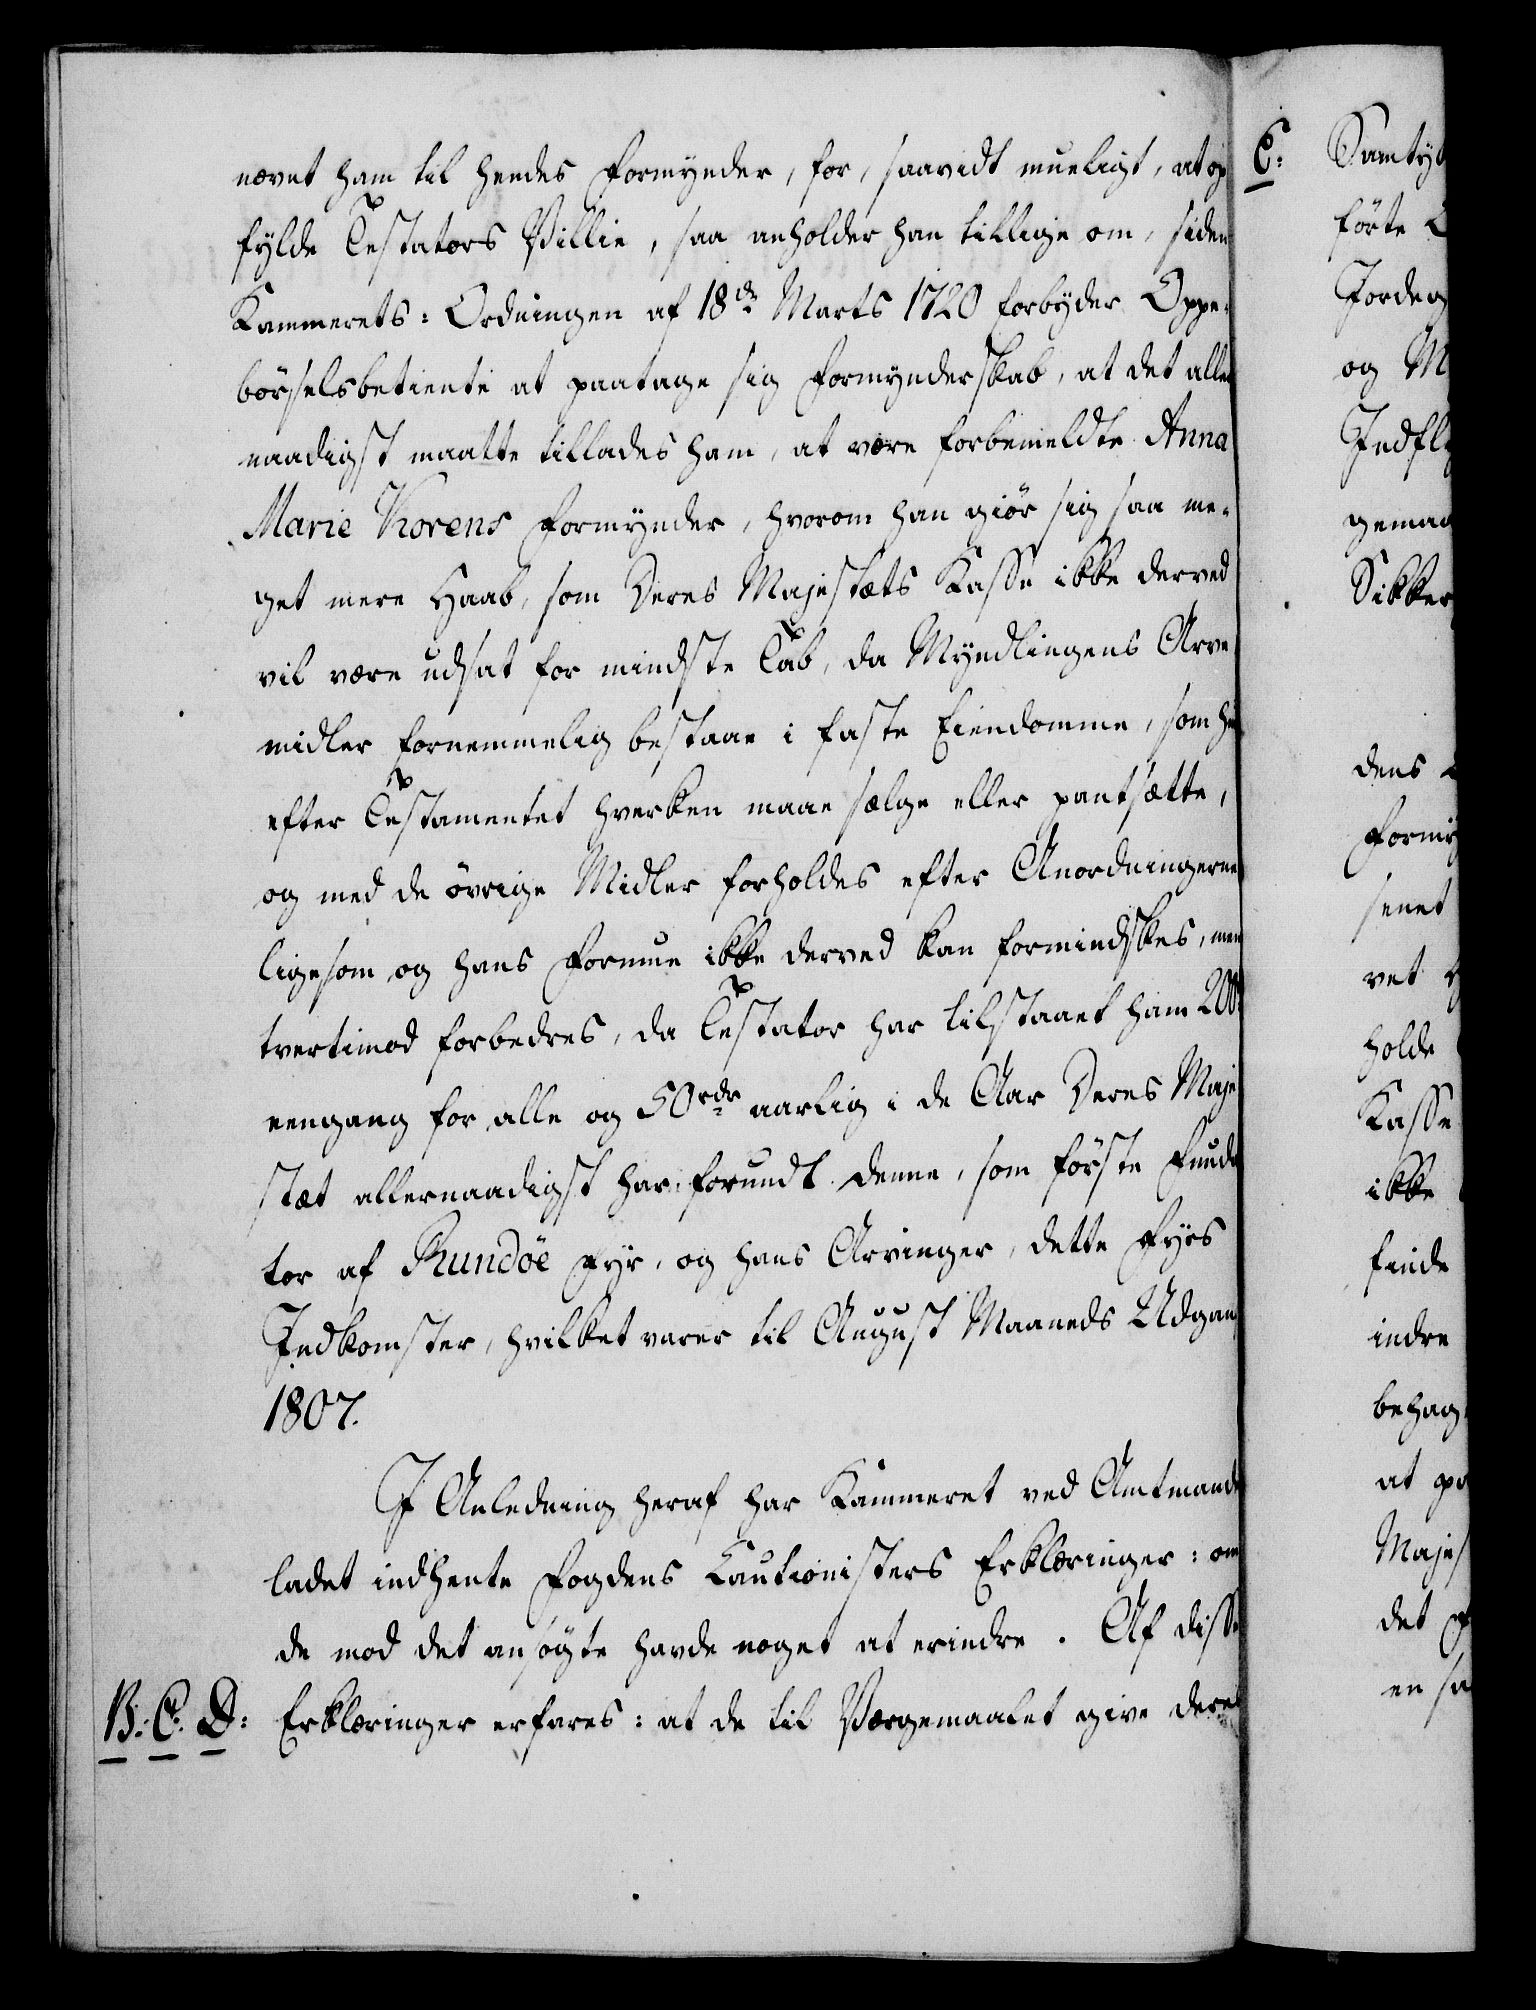 nævnt ham til hendes Formynder, for, saavidt mueligt, at op
fylde Testators Villie, saa anholder han tillige om, siden
Kammerets: Ordningen af 18de Marts 1720 forbyder Oppe-
börselsbetiente at paatage sig Formynderskab, at det aller
naadigst maatte tillades ham, at være forbemeldte Anna
Marie Korens Formynder, hvorom han giör sig saa me-
get mere Haab, som Deres Majestæts Kasse ikke derved
vil være udsat for mindste Tab, da Myndlingens Arve
midler fornemmelig bestaae i faste Eiendomme, som hun
efter Testamentet hverken maae sælge eller pantsætte,
og med de övrige Midler forholdes efter Anordningerne
ligesom og hans Formue ikke derved kan formindskes, men
tvertimod forbedres, da Testator har tilstaaet ham 200
eengang for alle og 50rdr aarlig i de Aar Deres Maje
stæt allernaadigst har forundt denne, som förste Funda
tor af Rundöe Fyr, og hans Arvinger, dette Fyrs
Indkomster, hvilket varer til August Maaneds Udgang
1807.
I Anledning heraf har Kammeret ved Amtmanden
ladet indhente Fogdens Cautionisters Erklæringer: om
de mod det ansögte havde noget at erindre. Af disse
B: C: D: Erklæringer erfares: at de til Værgemaalet give deres
E: Samty
förte
Jordeg
og M
Indfly
gemaa
Sikker
dens
Formy
senet
vet
holde
Kasse
ikke
finde
indre
behag
at pa
Majes
det
en sa